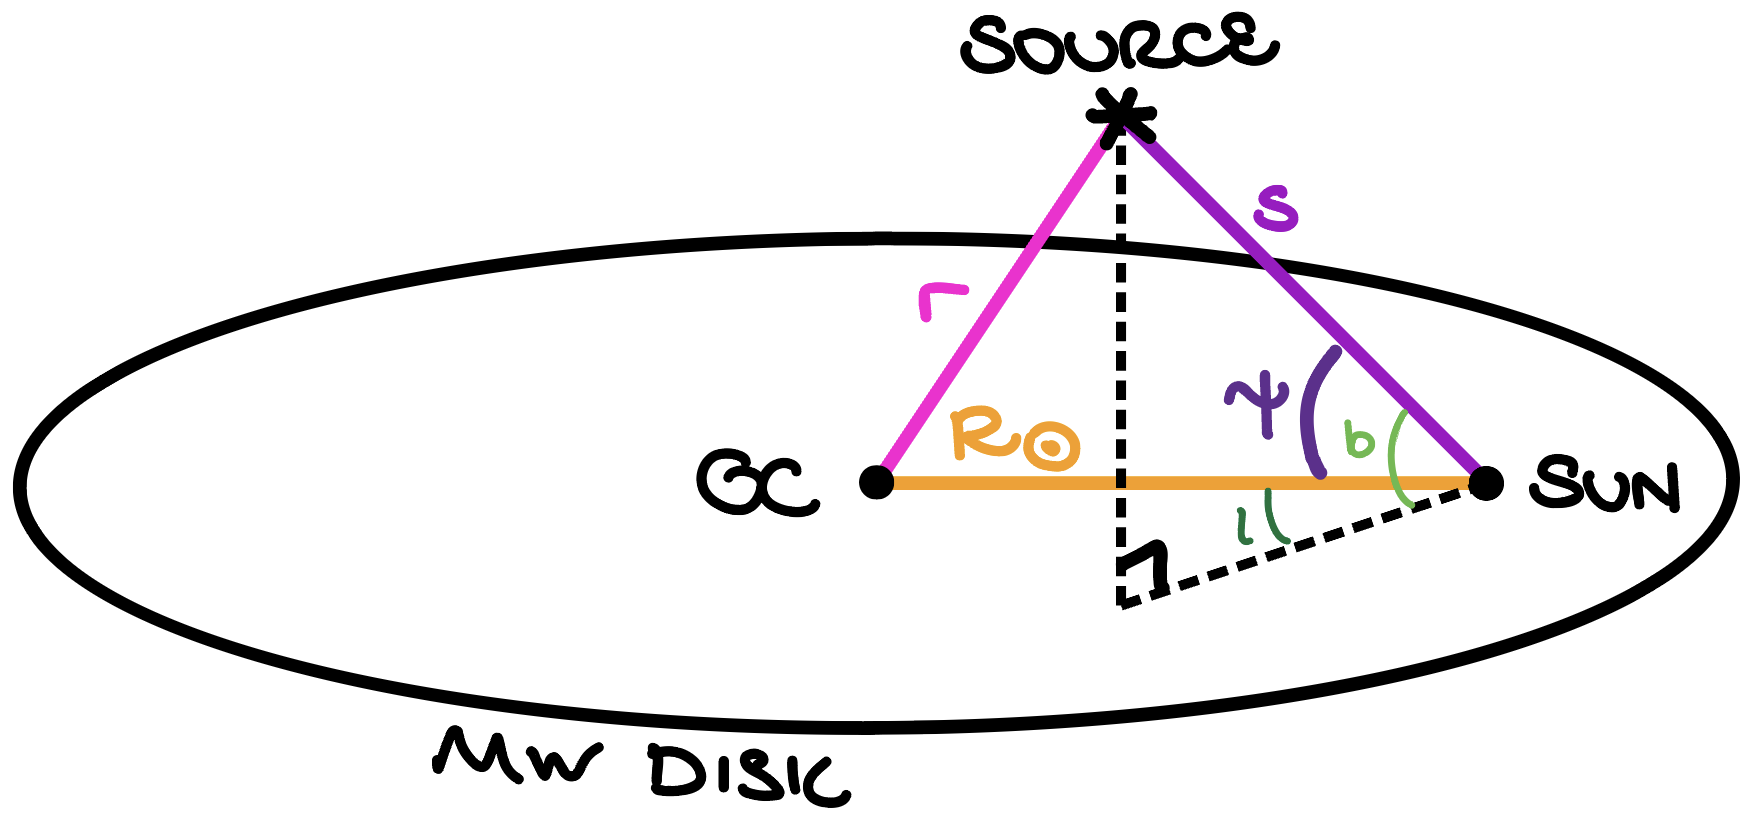 SOURCE
s
r
ψ
R⊙
b
GC
SUN
l
MW DISK